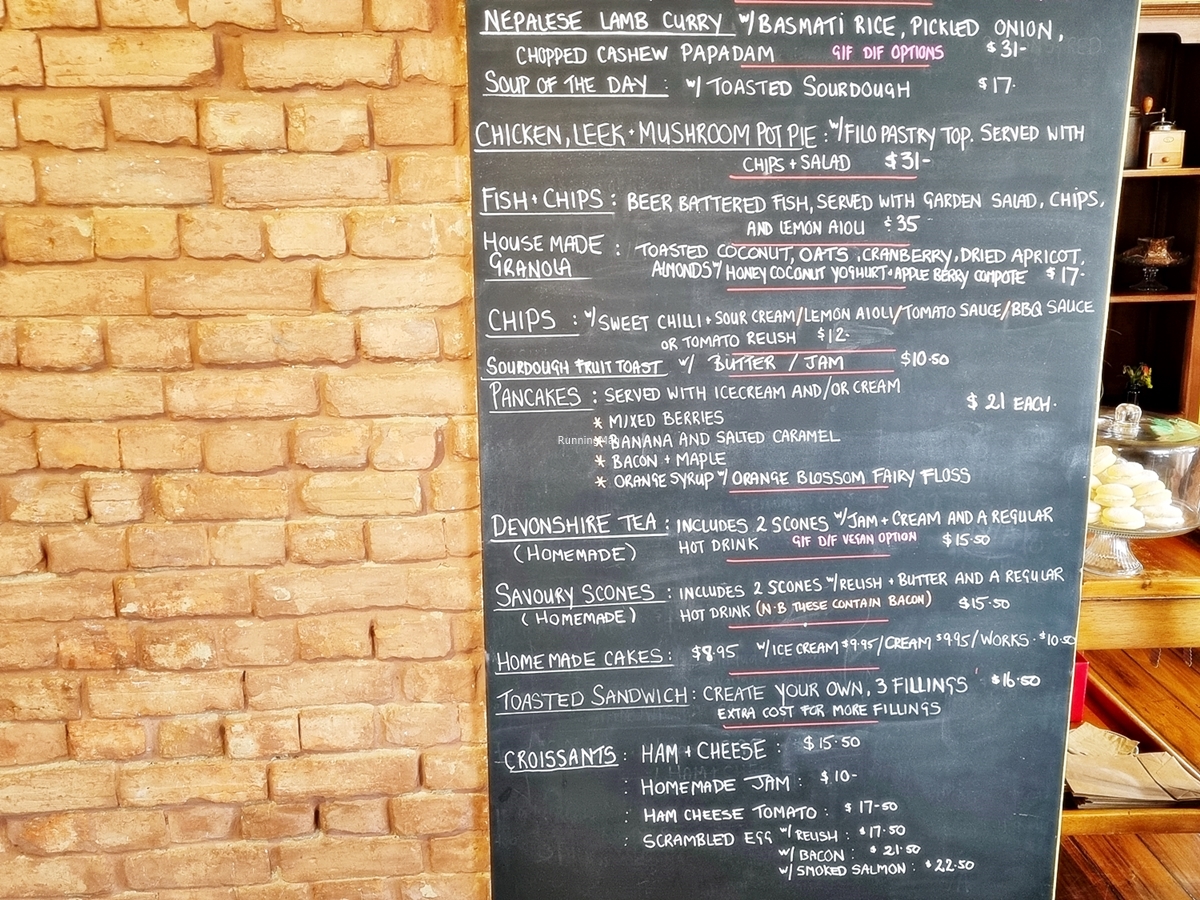 NEPALESE LAMB CURRY w/ BASMATI RICE, PICKLED ONION,
CHOPPED CASHEW PAPADAM GIF DIF OPTIONS $31-
SOUP OF THE DAY : w/ TOASTED SOURDOUGH $17-
CHICKEN, LEEK + MUSHROOM POT PIE : w/ FILO PASTRY TOP. SERVED WITH
CHIPS + SALAD $31-
FISH + CHIPS : BEER BATTERED FISH, SERVED WITH GARDEN SALAD, CHIPS,
AND LEMON AIOLI $35
HOUSE MADE GRANOLA : TOASTED COCONUT, OATS, CRANBERRY, DRIED APRICOT,
ALMONDS w/ HONEY COCONUT YOGHURT + APPLE BERRY COMPOTE $17-
CHIPS : w/ SWEET CHILLI + SOUR CREAM/LEMON AIOLI/TOMATO SAUCE/BBQ SAUCE
OR TOMATO RELISH $12-
SOURDOUGH FRUIT TOAST w/ BUTTER / JAM $10.50
PANCAKES : SERVED WITH ICECREAM AND/OR CREAM $21 EACH.
* MIXED BERRIES
* BANANA AND SALTED CARAMEL
* BACON + MAPLE
* ORANGE SYRUP w/ ORANGE BLOSSOM FAIRY FLOSS
DEVONSHIRE TEA : INCLUDES 2 SCONES w/ JAM + CREAM AND A REGULAR
(HOMEMADE) HOT DRINK GIF DIF VEGAN OPTION $15.50
SAVOURY SCONES : INCLUDES 2 SCONES w/ RELISH + BUTTER AND A REGULAR
(HOMEMADE) HOT DRINK (N.B THESE CONTAIN BACON) $15.50
HOMEMADE CAKES : $8.95 w/ ICE CREAM $9.95/CREAM $9.95/WORKS $10.50
TOASTED SANDWICH : CREATE YOUR OWN, 3 FILLINGS $16.50
EXTRA COST FOR MORE FILLINGS
CROISSANTS : HAM + CHEESE : $15.50
: HOMEMADE JAM : $10-
: HAM CHEESE TOMATO : $17-50
: SCRAMBLED EGG w/ RELISH : $17.50
w/ BACON : $21.50
w/ SMOKED SALMON : $22.50